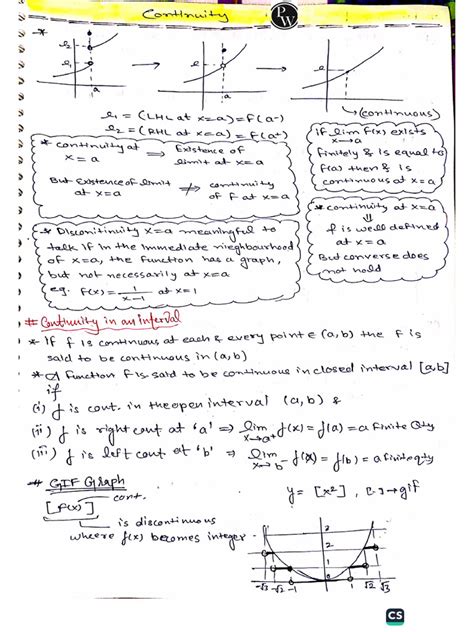 Continuity
PW
*
l2
l1
a
l
l
a
l1 = (LHL at x=a) = F(a-)
l2 = (RHL at x=a) = F(a+)
(continuous)
* continuity at x = a ⇒ Existence of limit at x = a
But Existence of limit at x=a ⇏ continuity of F at x=a
if lim x→a F(x) exists
finitely & is equal to
F(a) then f is
continuous at x=a
* continuity at x=a
⇓
f is well defined
at x=a
But converse does
not hold
* Discontinuity x=a meaningful to
talk if in the immediate neighbourhood
of x=a, the function has a graph,
but not necessarily at x=a
eg. F(x) = 1/(x-1) at x=1
# Continuity in an interval
* If f is continuous at each & every point ∈ (a,b) the f is
said to be continuous in (a,b)
* A function F is said to be continuous in closed interval [a,b]
if
(i) f is cont. in the open interval (a,b) &
(ii) f is right cont at 'a' ⇒ lim x→a+ f(x) = f(a) = a finite Qty
(iii) f is left cont at 'b' ⇒ lim x→b- f(x) = f(b) = a finite qty
* GIF Graph
cont.
[f(x)]
is discontinuous
where f(x) becomes integer.
y = [x²] , [.] → gif
3
2
1
0
-√3 -√2 -1 1 √2 √3
CS